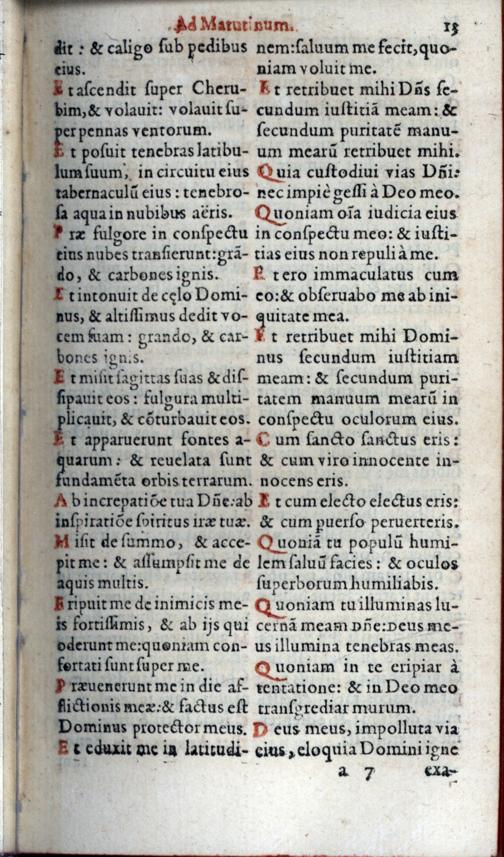 Ad Matutinum.
13
dit : & caligo sub pedibus
eius.
Et ascendit super Cheru-
bim, & volauit: volauit su-
per pennas ventorum.
Et posuit tenebras latibu-
lum suum, in circuitu eius
tabernaculũ eius : tenebro-
sa aqua in nubibus aëris.
Præ fulgore in conspectu
eius nubes transierunt: grã-
do, & carbones ignis.
Et intonuit de cęlo Domi-
nus, & altissimus dedit vo-
cem suam : grando, & car-
bones ignis.
Et misit sagittas suas & dis-
sipauit eos : fulgura multi-
plicauit, & cõturbauit eos.
Et apparuerunt fontes a-
quarum : & reuelata sunt
fundamẽta orbis terrarum.
Ab increpatiõe tua Dñe: ab
inspiratiõe spiritus iræ tuæ.
Misit de summo, & acce-
pit me : & assumpsit me de
aquis multis.
Eripuit me de inimicis me-
is fortissimis, & ab ijs qui
oderunt me: quoniam con-
fortati sunt super me.
Præuenerunt me in die af-
flictionis meæ: & factus est
Dominus protector meus.
Et eduxit me in latitudi-
nem: saluum me fecit, quo-
niam voluit me.
Et retribuet mihi Dñs se-
cundum iustitiã meam: &
secundum puritatẽ manu-
um mearũ retribuet mihi.
Quia custodiui vias Dñi:
nec impiè gessi à Deo meo.
Quoniam oĩa iudicia eius
in conspectu meo: & iusti-
tias eius non repuli à me.
Et ero immaculatus cum
eo: & obseruabo me ab ini-
quitate mea.
Et retribuet mihi Domi-
nus secundum iustitiam
meam : & secundum puri-
tatem manuum mearũ in
conspectu oculorum eius.
Cum sancto sanctus eris :
& cum viro innocente in-
nocens eris.
Et cum electo electus eris:
& cum puerso peruerteris.
Quoniã tu populũ humi-
lem saluũ facies : & oculos
superborum humiliabis.
Quoniam tu illuminas lu-
cernã meam Dñe: Deus me-
us illumina tenebras meas.
Quoniam in te eripiar à
tentatione : & in Deo meo
transgrediar murum.
Deus meus, impolluta via
eius, eloquia Domini igne
a 7
exa-